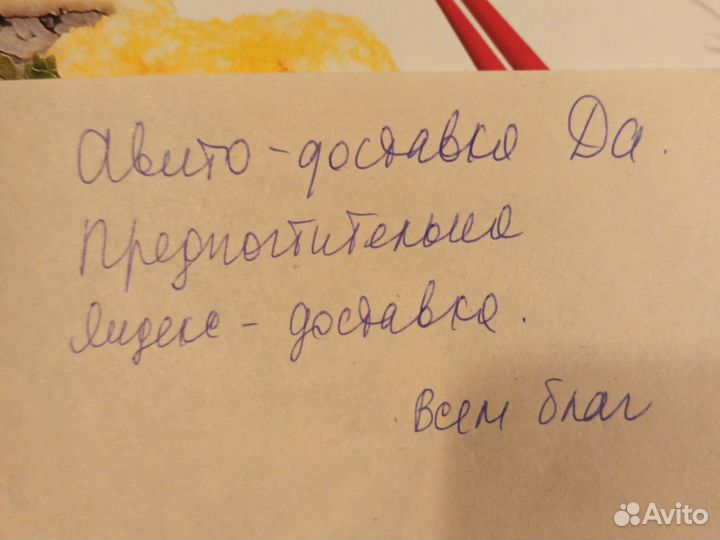 Авито-доставка Да.
Предпочтительно
Яндекс - доставка.
Всем благ
Avito